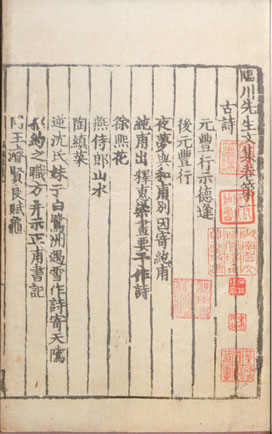 臨川先生文集卷第一
古詩
元豐行示德逢
後元豐行
夜夢與和甫别因寄純甫
純甫出釋惠崇畫要予作詩
徐熙花
燕侍郎山水
陶縝菜
逆沈氏妹于白鷺洲遇雪作詩寄天隲
和約之職方并示正甫書記
同王濬賢良賦龜